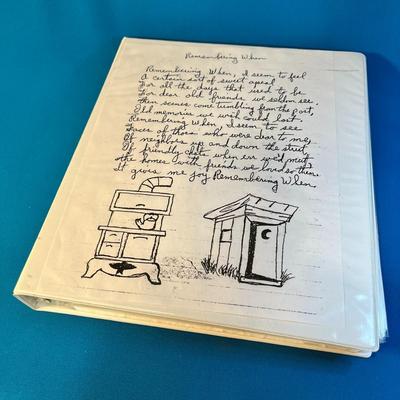 Remembering When
Remembering When, I seem to feel
A certain sort of sweet appeal
For all the days that used to be
For dear old friends we seldom see.
then scenes come tumbling from the past,
Old memories we wish could last.
Remembering When I seem to see
Faces of those who were dear to me,
Of neighbors up and down the street,
Of friendly chats when e'er we'd meet,
the homes with friends we loved so then
It gives me joy Remembering When.